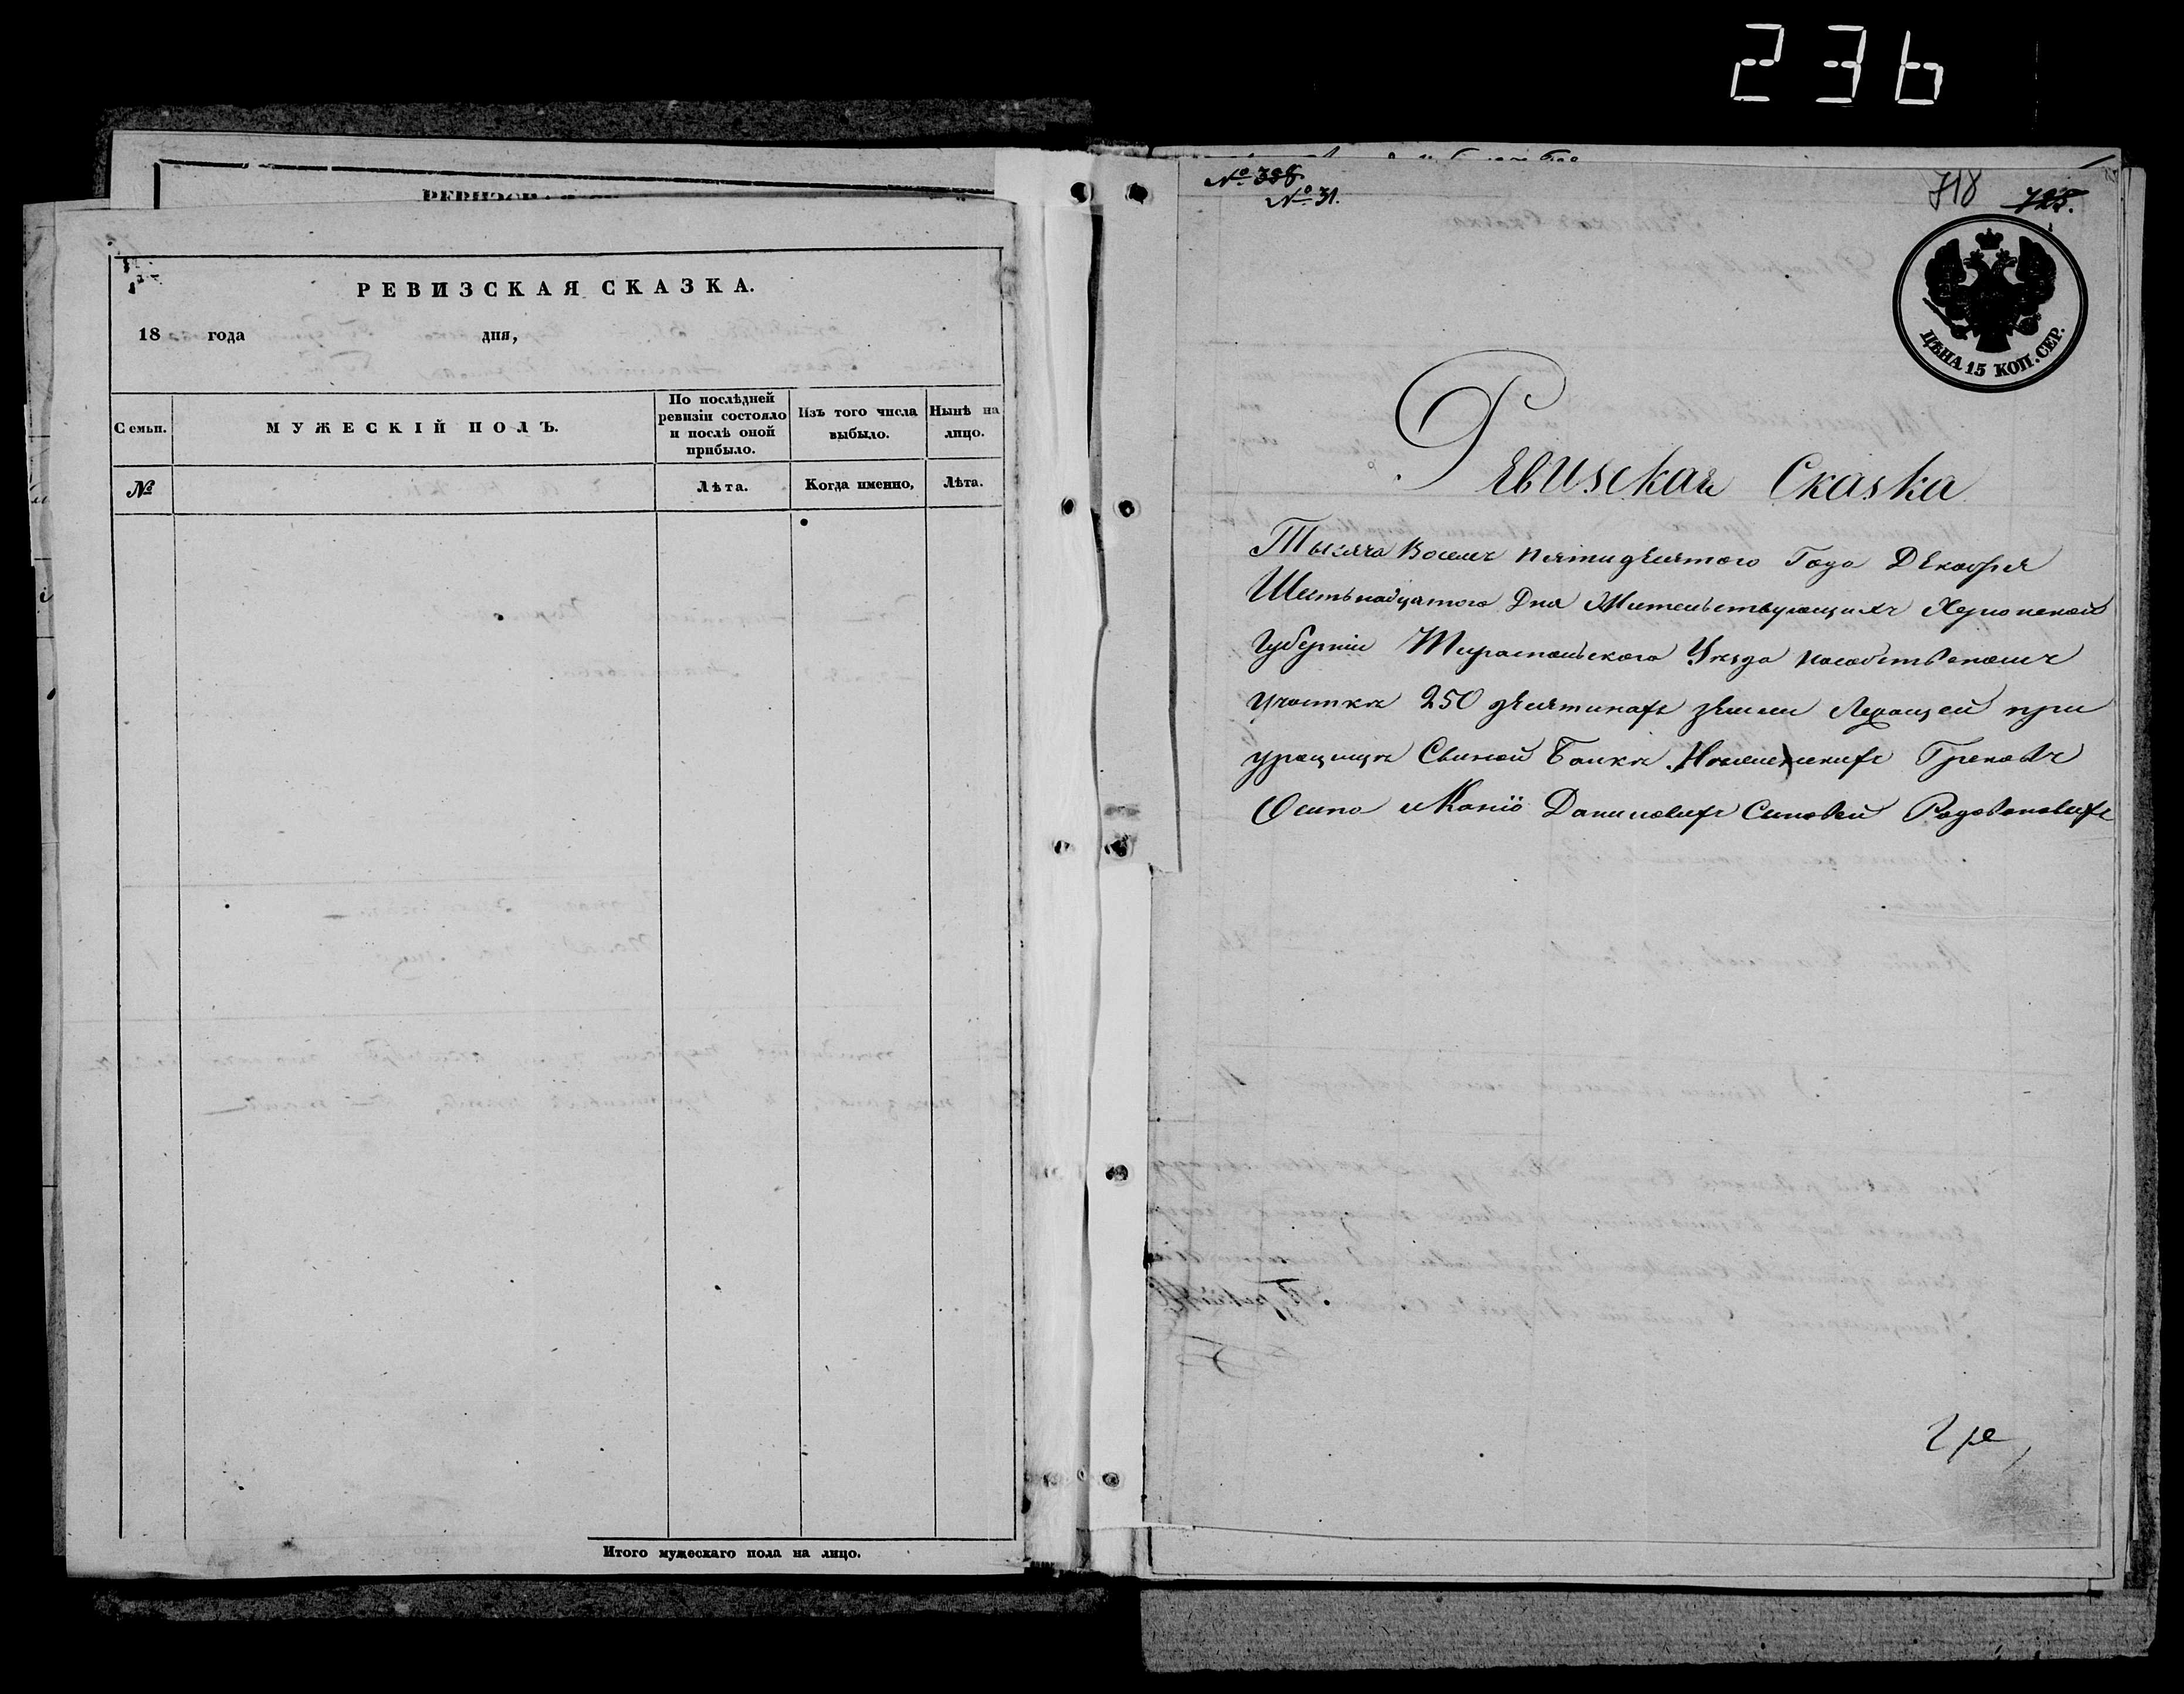 236
РЕВИЗСКАЯ СКАЗКА.
18 года дня,
Семьи.
МУЖЕСКІЙ ПОЛЪ.
По послѣдней ревизіи состояло и послѣ оной прибыло.
Изъ того числа выбыло.
Нынѣ на лицо.
№
Лѣта.
Когда именно,
Лѣта.
Итого мужескаго пола на лицо.
№ 398.
№ 31.
718 725.
ЦѢНА 15 КОП. СЕР.
Ревизская Сказка
Тысяча Восемъ пятидесятого Года Декабря
Шестьнадцатого Дня Жительствующихъ Херсонской
Губерніи Тирасполского Уезда насобственомъ
участкѣ 250 десятинахъ земли Лежащей при
урощищѣ Свиной Балкѣ Грековъ
Осипа и Даниловихъ Синовей Родовановихъ